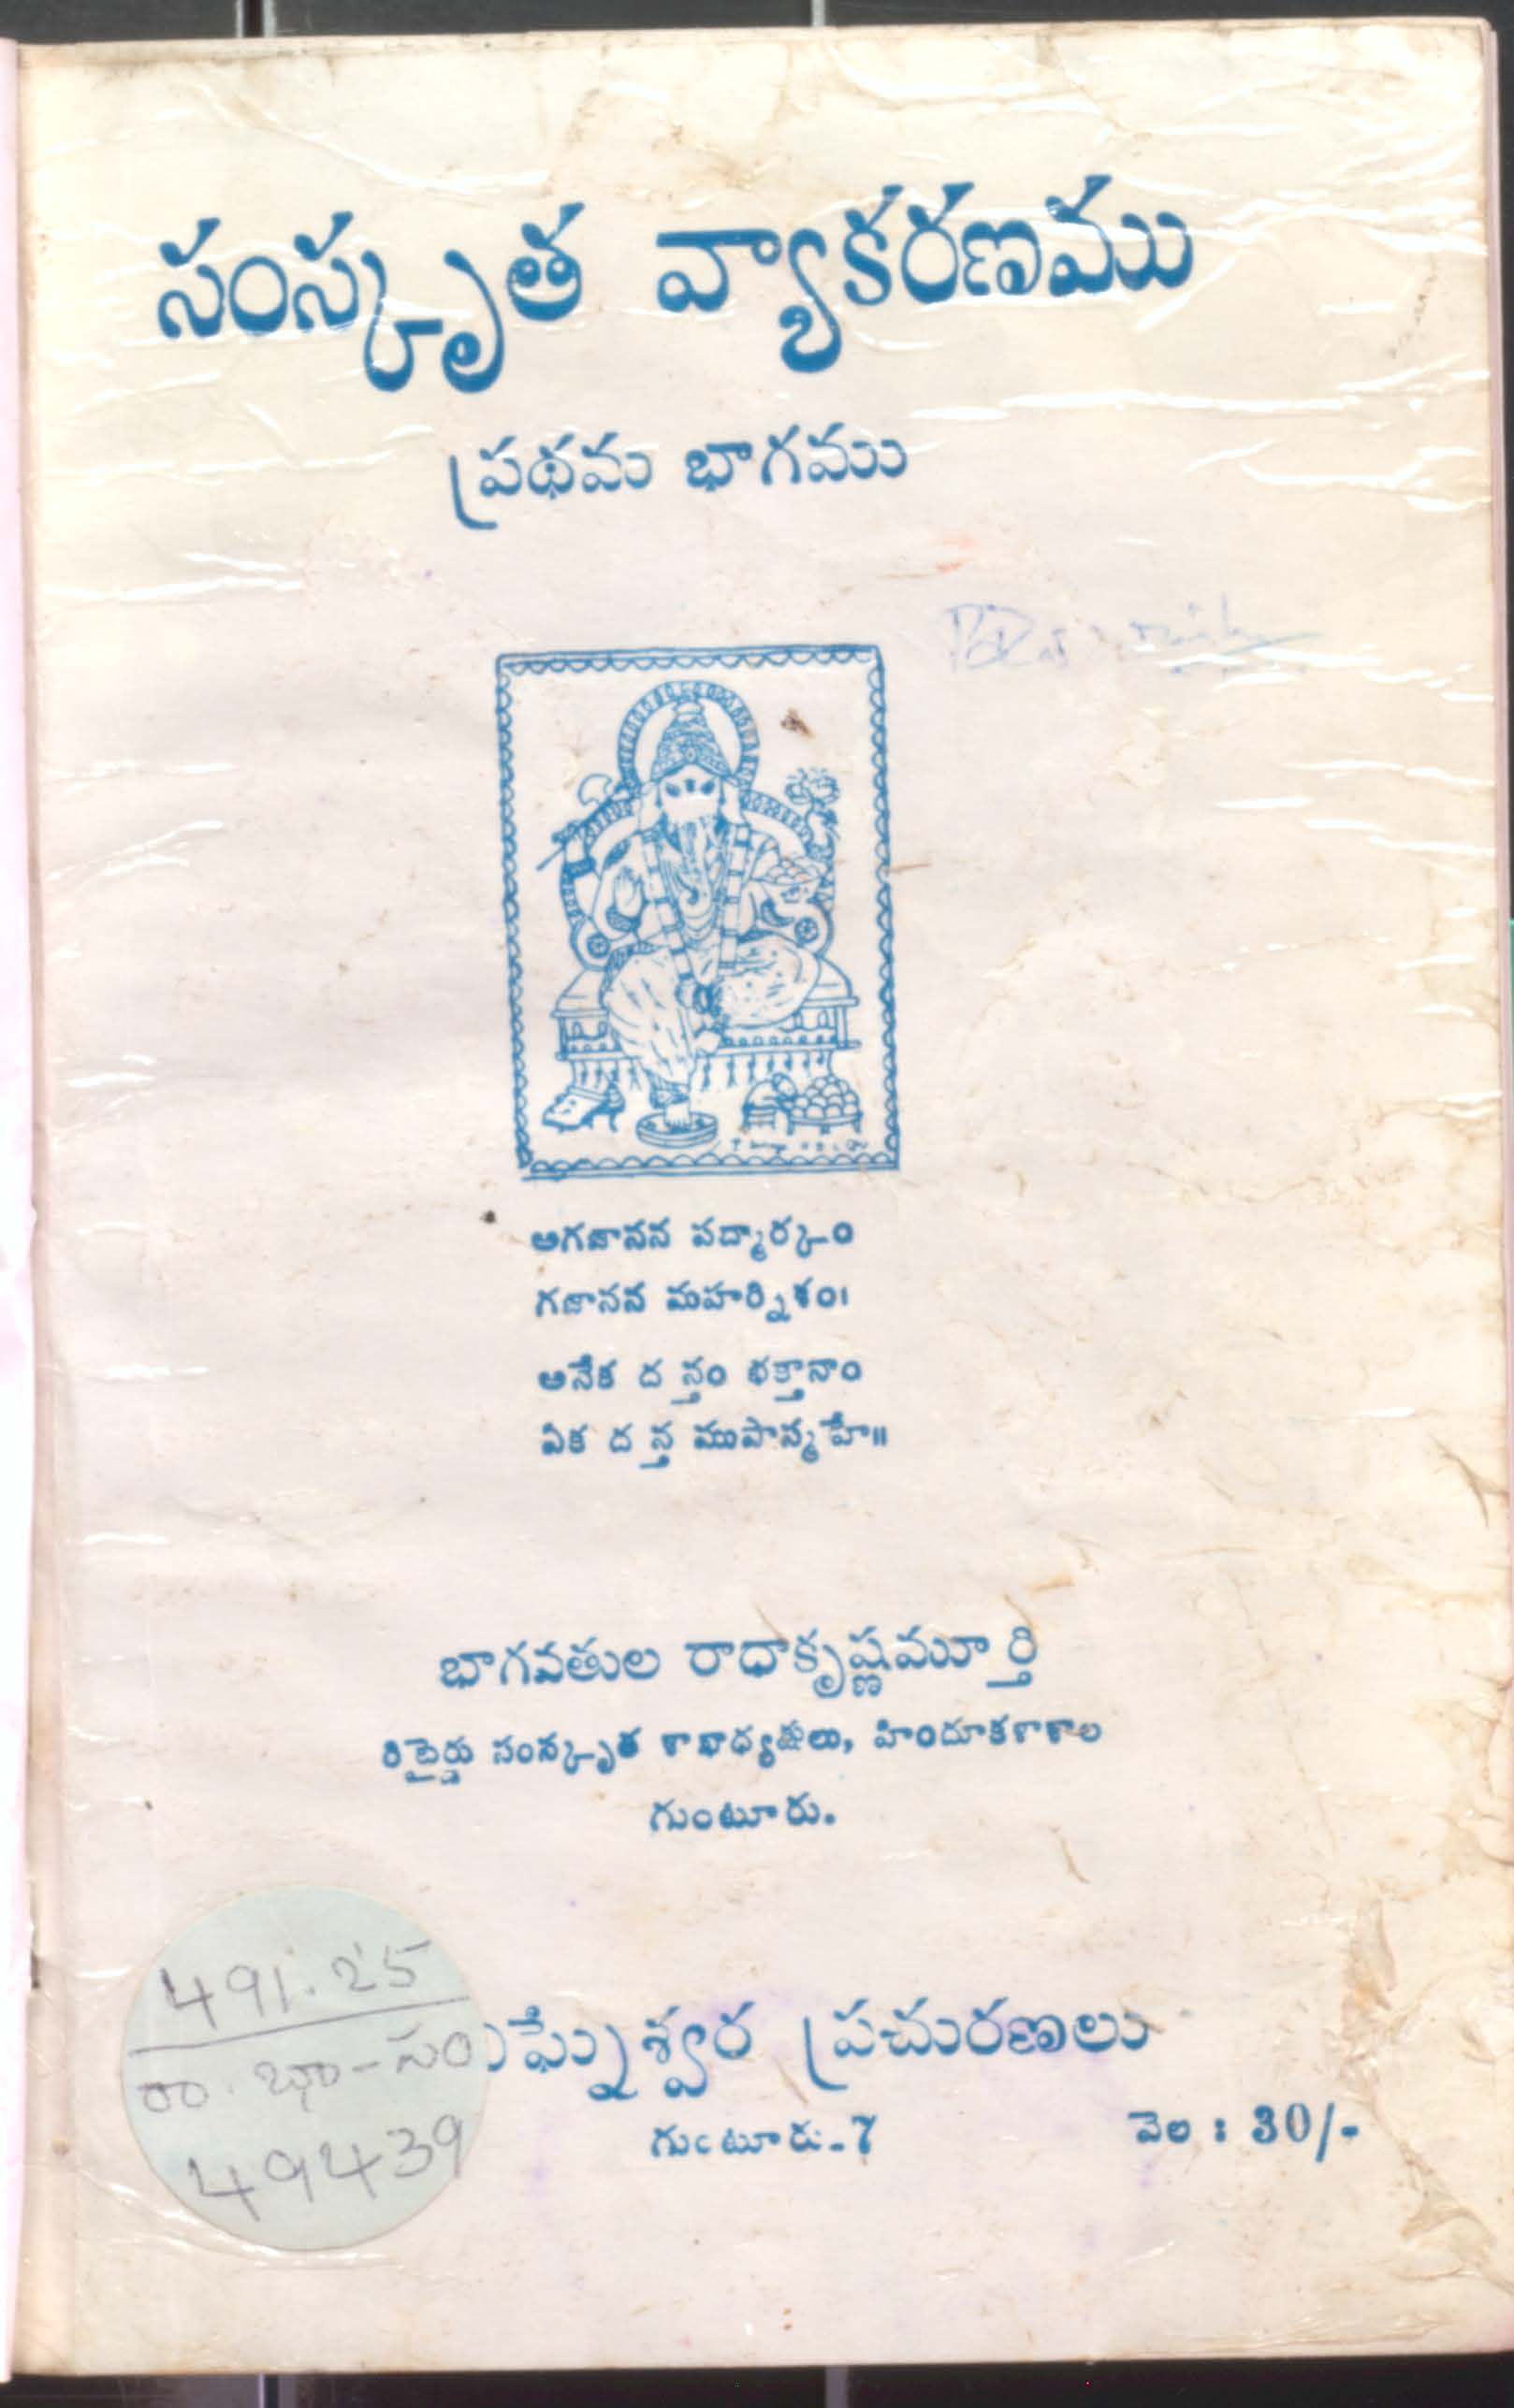 సంస్కృత వ్యాకరణము
ప్రథమ భాగము
అగజానన పద్మార్కం
గజానన మహర్నిశం।
అనేక దన్తం భక్తానాం
ఏక దన్త ముపాస్మహే॥
భాగవతుల రాధాకృష్ణమూర్తి
రిటైర్డు సంస్కృత శాఖాధ్యక్షులు, హిందూకళాశాల
గుంటూరు.
491.25
రా. భా-సం
49439
ఘ్నేశ్వర ప్రచురణలు
గుంటూరు-7
వెల : 30/-